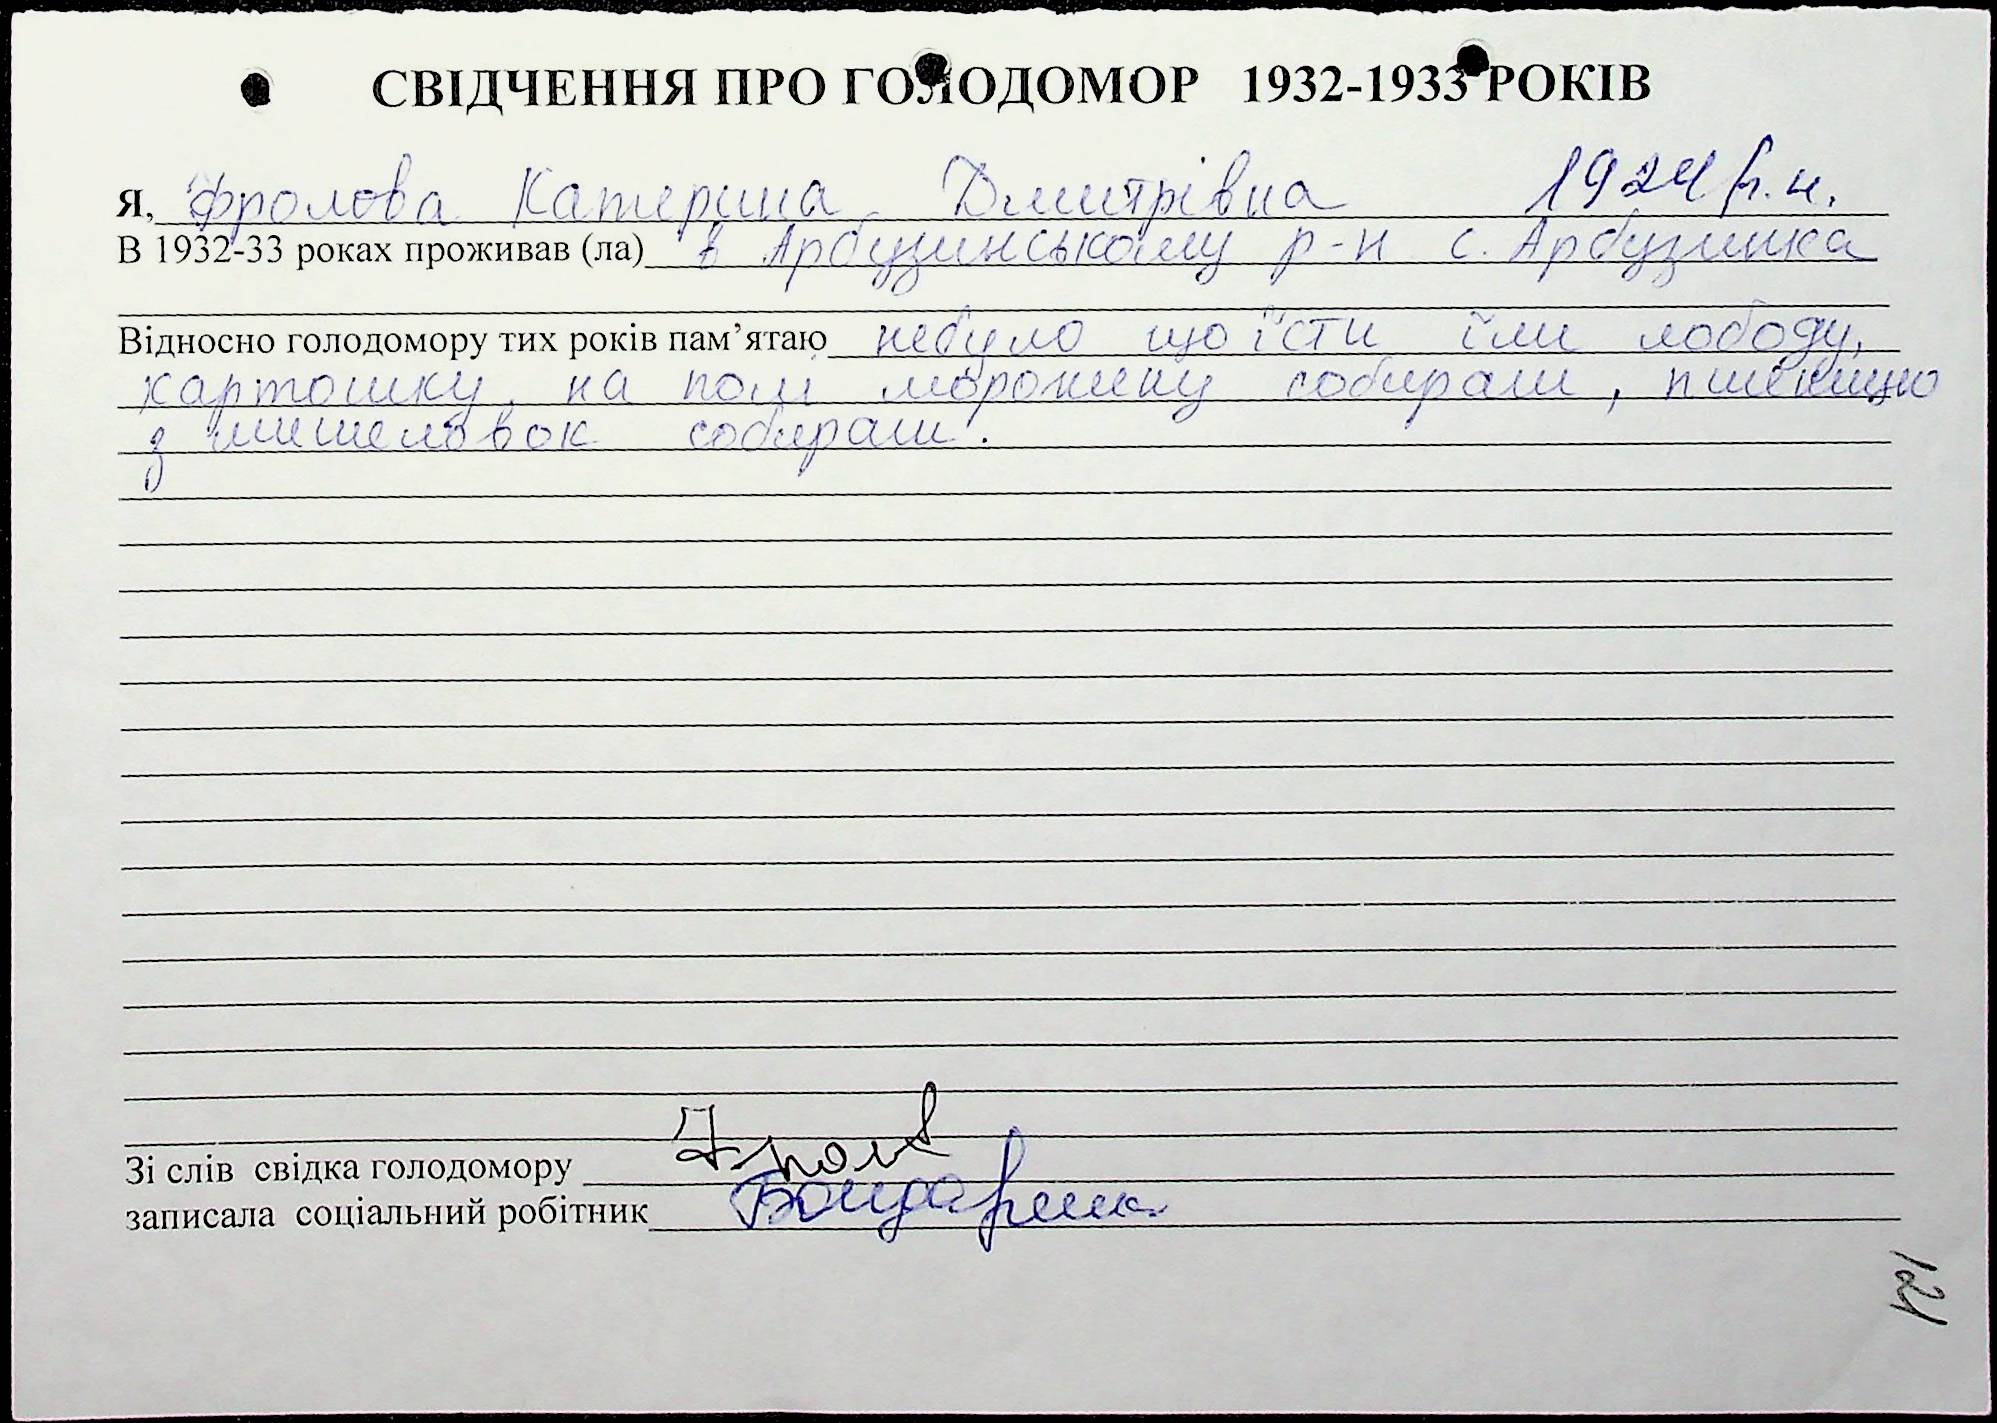 СВІДЧЕННЯ ПРО ГОЛОДОМОР 1932-1933 РОКІВ
Я, Фролова Катерина Дмитрівна 1924 р.н.
В 1932-33 роках проживав (ла) в Арбузинському р-н с. Арбузинка
Відносно голодомору тих років пам’ятаю небуло що їсти їли лободу,
картошку на полі морожену собирали, пшеницю
з мишеловок собирали.
Зі слів свідка голодомору Фролов
записала соціальний робітник
121